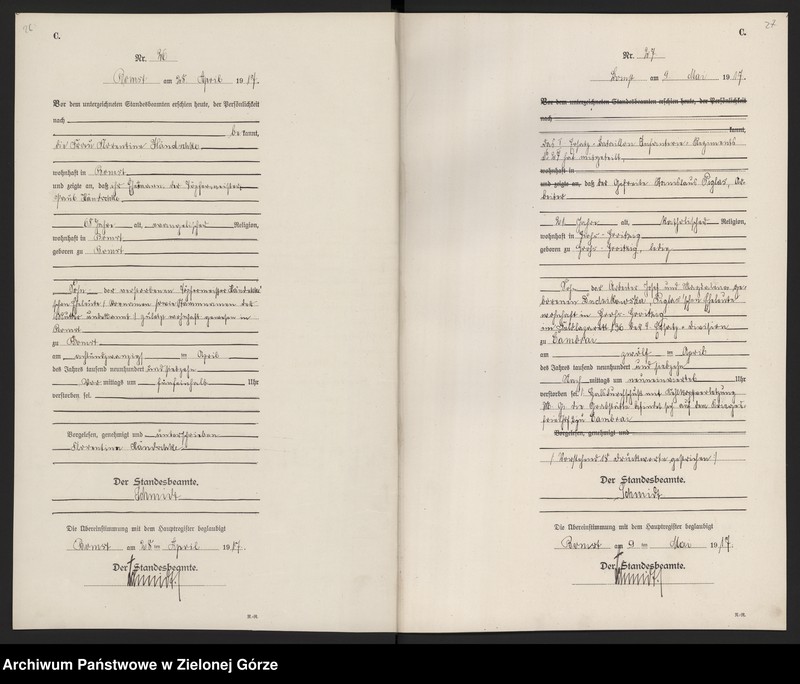 26
C.
Nr. 26
Bomst am 28 April 1917.
Vor dem unterzeichneten Standesbeamten erschien heute, der Persönlichkeit
nach
be kannt,
die Frau Florentine Händschke
wohnhaft in Bomst
und zeigte an, daß ihr Ehemann der Töpfermeister
Paul Händschke
65 Jahre alt, evangelischer Religion,
wohnhaft in Bomst
geboren zu Bomst
Sohn der verstorbenen Töpfermeister Händschke
schen Eheleute
Mutter unbekannt / zuletzt wohnhaft gewesen in
Bomst
zu Bomst
am achtundzwanzigsten April
des Jahres tausend neunhundert und siebzehn
Vor mittags um fünfeinhalb Uhr
verstorben sei.
Vorgelesen, genehmigt und unterschrieben
Florentine Händschke
Der Standesbeamte.
Schmidt
Die Übereinstimmung mit dem Hauptregister beglaubigt
Bomst am 28 ten April 1917.
Der Standesbeamte.
Schmidt.
R.-R.
27
C.
Nr. 27
Bomst am 9 Mai 1917.
Vor dem unterzeichneten Standesbeamten erschien heute, der Persönlichkeit
nach
kannt,
Das I Ersatz-Bataillon Infanterie-Regiments
hat mitgeteilt,
wohnhaft in
und zeigte an, daß der Gefreite Stanislaus Piglas, Ar-
beiter
21 Jahre alt, Katholischer Religion,
wohnhaft in Groß-
geboren zu Groß- ledig
Sohn der Arbeiter Josef und Magdalena ge-
borenen Piglas'schen Eheleute
wohnhaft in Groß-
im Feldlazarett der Ersatz-Division
zu
am zwölften April
des Jahres tausend neunhundert und siebzehn
Nach mittags um Uhr
verstorben sei
Die Grabstätte befindet sich auf dem
friedhof zu
Vorgelesen, genehmigt und
/ Vorstehend 15 Druckworte gestrichen /
Der Standesbeamte.
Schmidt
Die Übereinstimmung mit dem Hauptregister beglaubigt
Bomst am 9 ten Mai 1917.
Der Standesbeamte.
Schmidt.
R.-R.
Archiwum Państwowe w Zielonej Górze